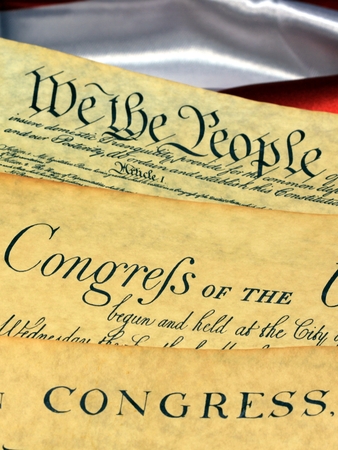 We the People
insure domestic Tranquility, provide for the common
and our Posterity, do ordain and establish this Constitution
Article I
Congreſs OF THE
begun and held at the City
Wednesday the
CONGRESS,